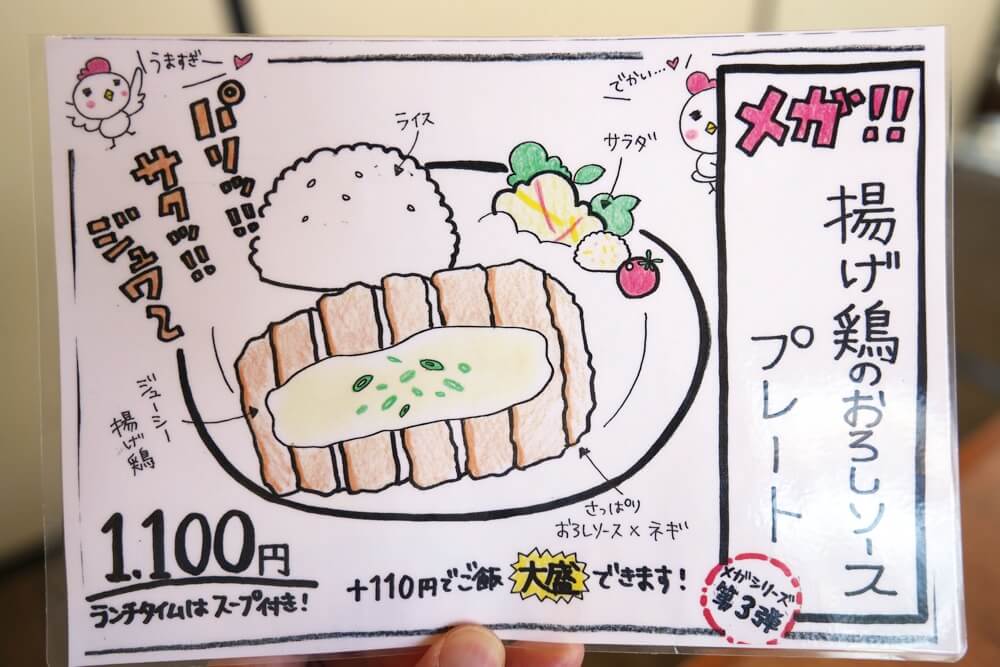 メガ!!
揚げ鶏のおろしソース
プレート
うますぎー
でかい…
パリッ!!
サクッ!!
ジュワ~
ライス
サラダ
ジューシー
揚げ鶏
さっぱり
おろしソース×ネギ
1.100円
ランチタイムはスープ付き!
+110円でご飯大盛できます!
メガシリーズ
第3弾